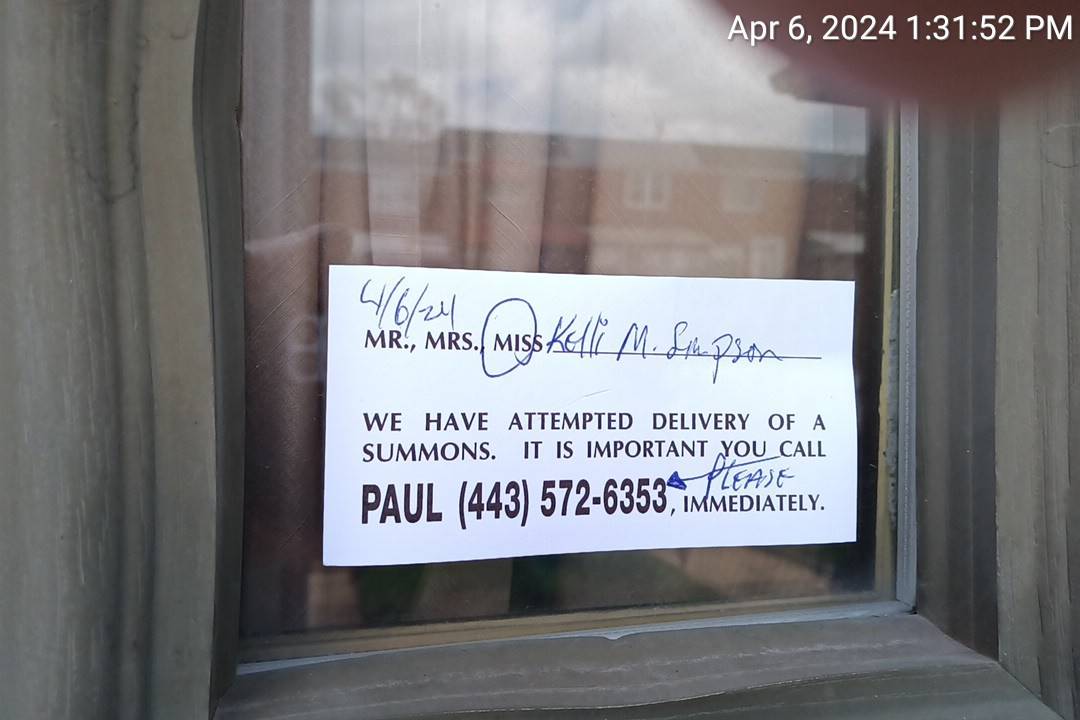 Apr 6, 2024 1:31:52 PM
4/6/24
MR., MRS., MISS Kelli M. Simpson
WE HAVE ATTEMPTED DELIVERY OF A
SUMMONS. IT IS IMPORTANT YOU CALL
PLEASE
PAUL (443) 572-6353, IMMEDIATELY.